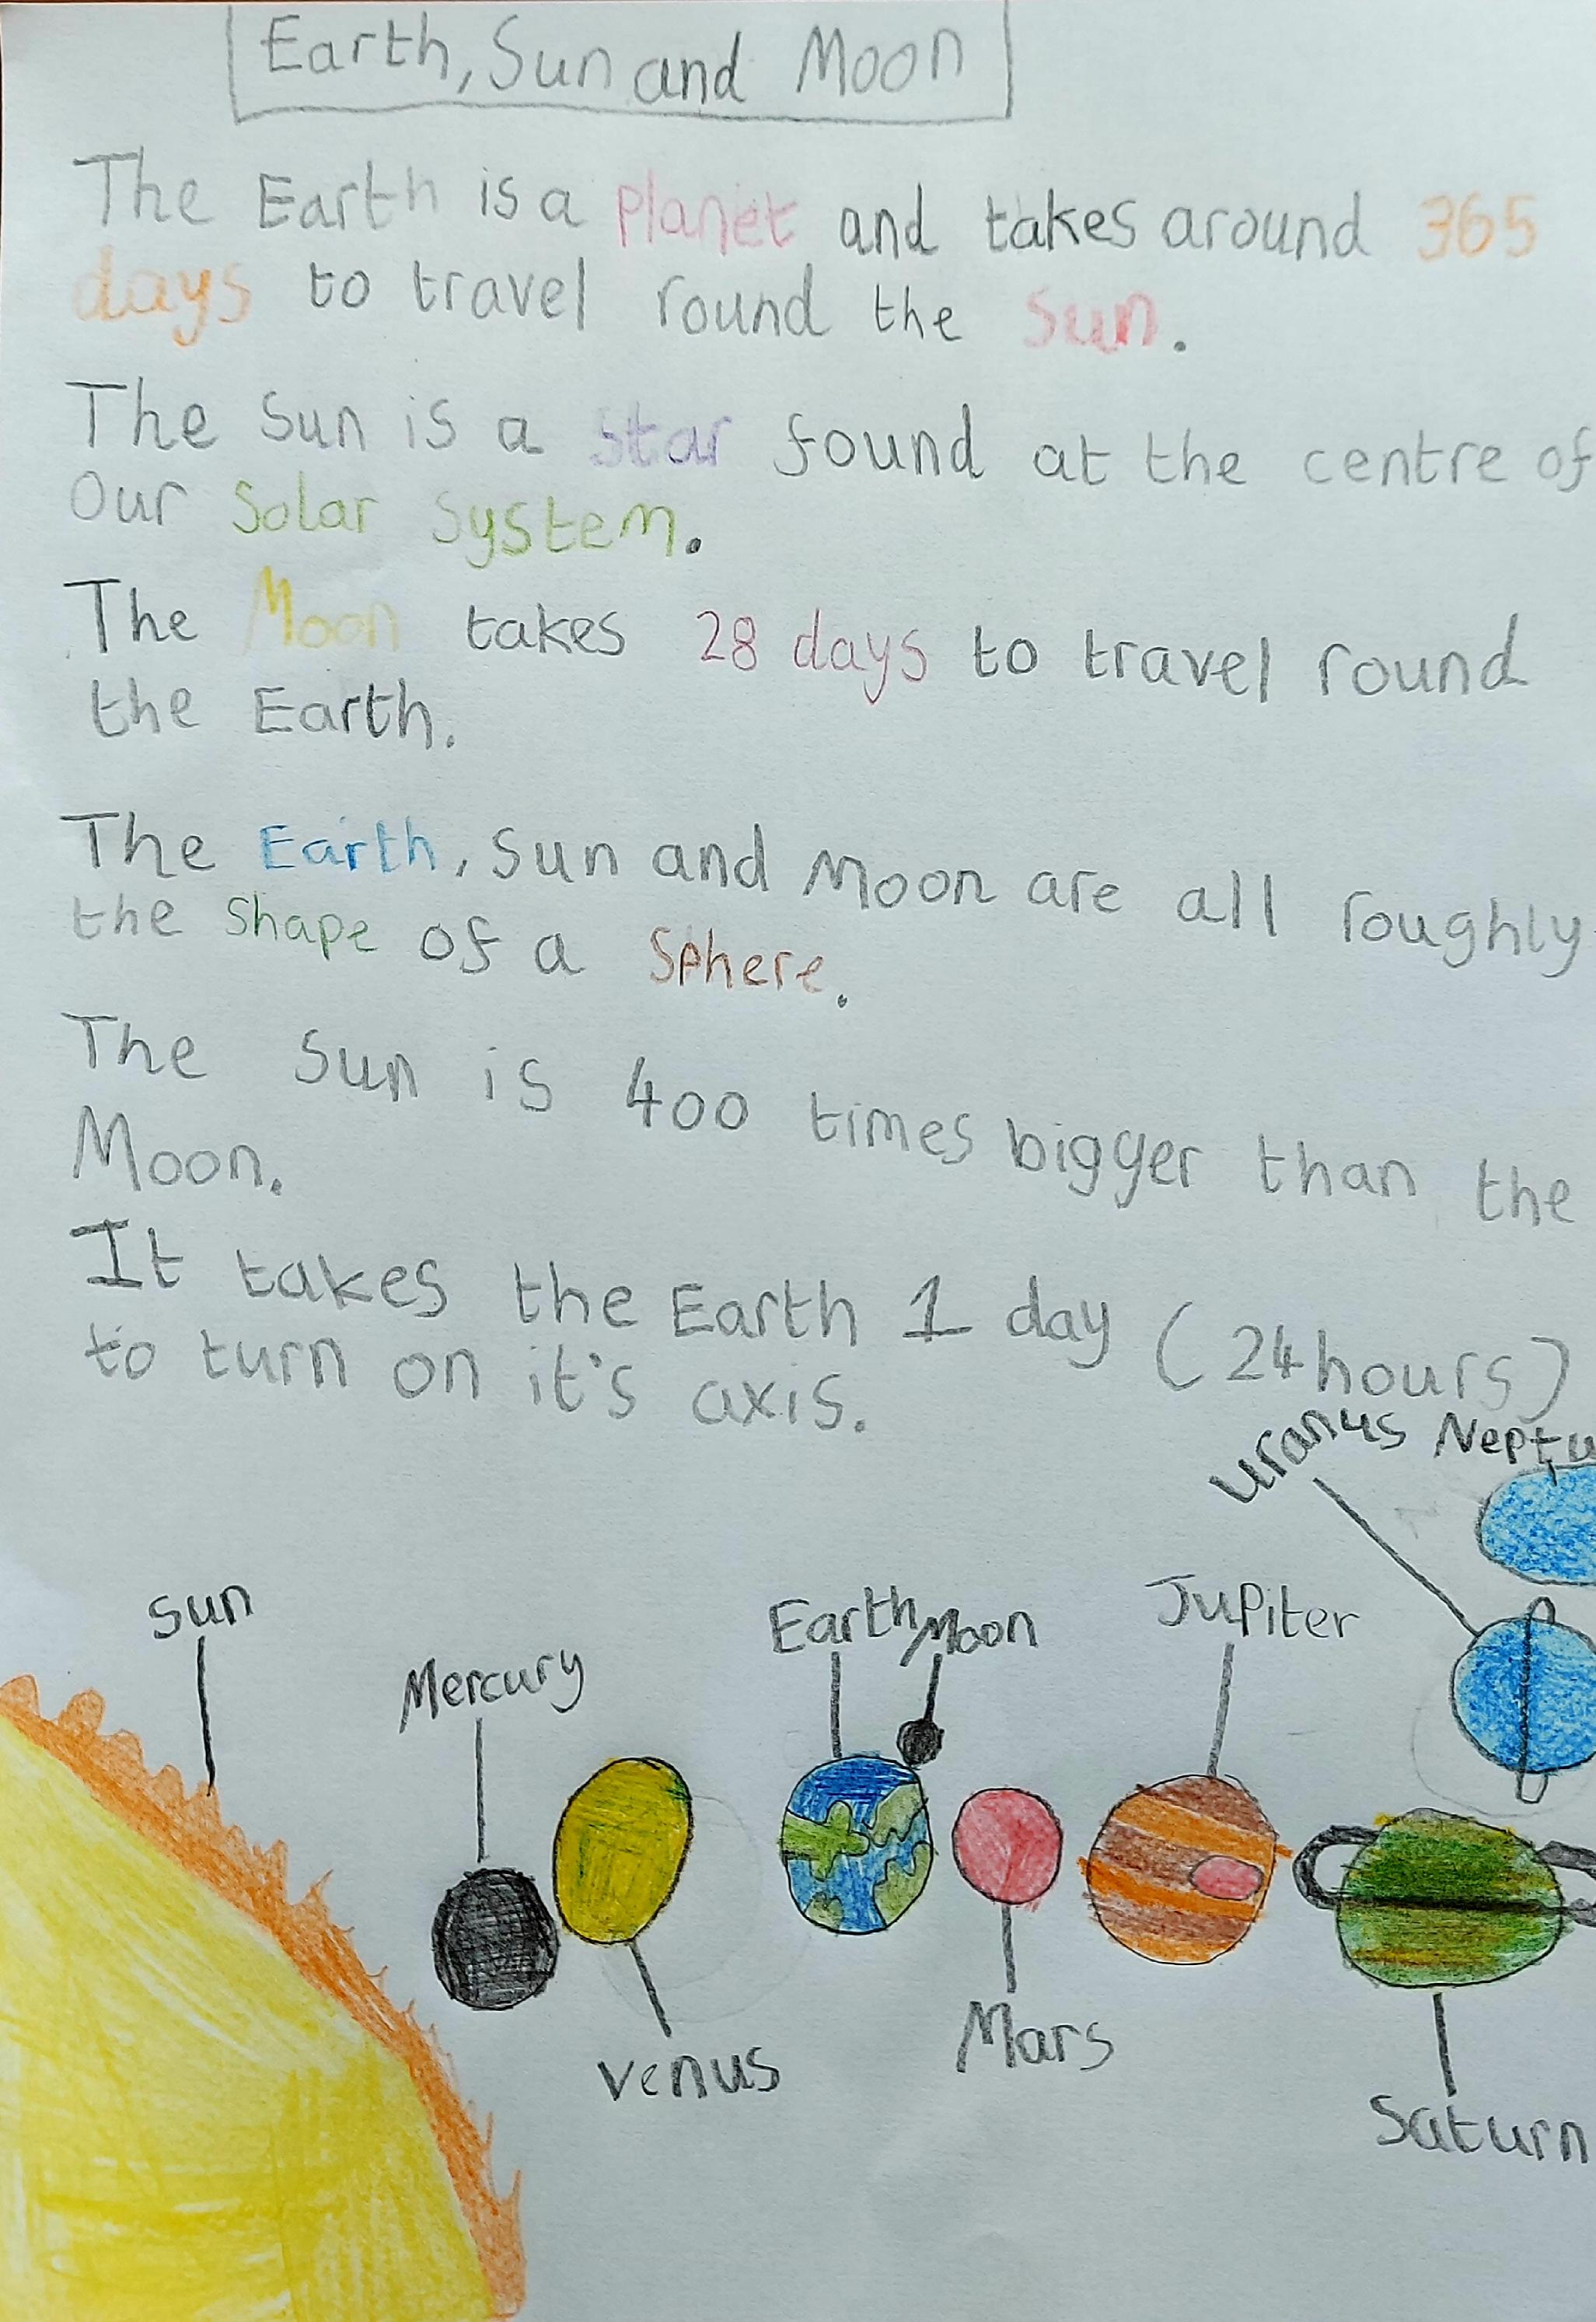 Earth, Sun and Moon
The Earth is a planet and takes around 365
days to travel round the Sun.
The Sun is a star found at the centre of
our Solar System.
The Moon takes 28 days to travel round
the Earth.
The Earth, Sun and Moon are all roughly
the shape of a sphere.
The Sun is 400 times bigger than the
Moon.
It takes the Earth 1 day (24 hours)
to turn on it's axis.
Uranus Neptu
Sun
Mercury
Earth Moon
Jupiter
Venus
Mars
Saturn